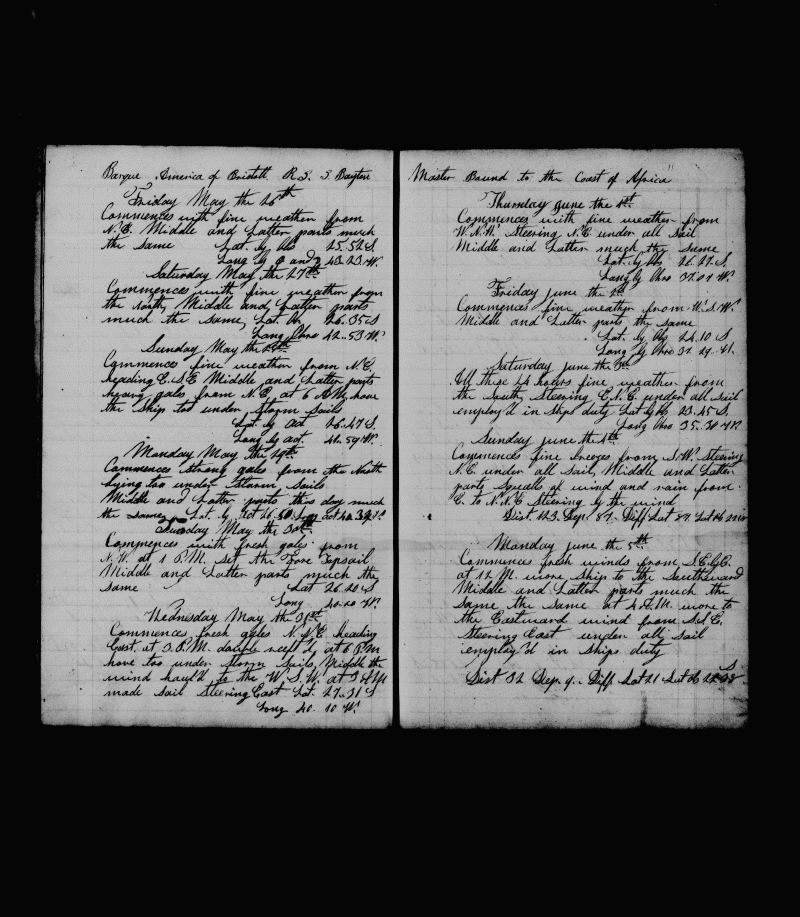 Barque America of Bristoll R.I. S Bayton
Friday May the 26th
Commences with fine weather from
N.E. Middle and Latter parts much
the same Lat. by Ob 25.52 S
Long by 43.23 W.
Saturday May the 27th
Commences with fine weather from
the North, Middle and Latter parts
much the same, Lat. Ob 26..35 S
Long Chro 42..53 W.
Sunday May the 28th
Commences fine weather from N.E.
heading E.S.E Middle and Latter parts
heavy gales from N.E. at 6 A.M. hove
the Ship too under Storm Sails
Lat. by act 26.47 S.
Long by act. 41.59 W.
Monday May the 29th
Commences Strong gales from the North
lying too under Storm Sails
Middle and Latter parts this day much
the same Lat. by act 26.50 Long act
Tuesday May the 30th
Commences with fresh gales from
N.W. at 1 P.M. Set the Fore Topsail
Middle and Latter parts much the
same Lat 26.20 S
Long 40.20 W.
Wednesday May the 31st
Commences fresh gales N.N.E. heading
East. at 3. P.M. double reef'd, at 6 P.M
hove too under Storm Sails, Middle the
wind haul'd to the W.S.W. at 9 A.M
made sail Steering East Lat. 27..31 S
Long 40. 10 W.
Master Bound to the Coast of Africa
Thursday June the 1st
Commences with fine weather from
W.N.W. Steering N.E under all Sail
Middle and Latter much the same
Lat. by Ob 26.27 S.
Long by Chro 37.01 W.
Friday June the 2d
Commences fine weather from W.S.W.
Middle and Latter parts the same
Lat. by Ob 24.10 S
Long by Chro
Saturday June the 3d
All these 24 hours fine weather from
the South, Steering E.N.E. under all Sail
employ'd in Ships duty Lat by Ob 23.45 S.
Long Chro 35.30 W
Sunday June the 4th
Commences fine breezes from S.W. Steering
N.E. under all Sail, Middle and Latter
parts Squalls of wind and rain from
E. to N.N.E Steering by the wind
Dist. 123 Dep. 87. Diff Lat 87. Lat Ob
Monday June the 5th
Commences fresh winds from S.E.
at 12 M. wore Ship to the Southward
Middle and Latter parts much the
same the same at 4 A.M. wore to
the Eastward wind from S.S.E.
Steering East under all Sail
employ'd in Ships duty
Dist 32 Dep 9.. Diff Lat 21 Lat Ob